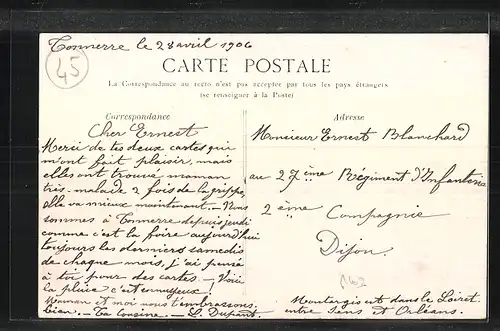 Tonnerre le 28 avril 1906
45
CARTE POSTALE
La Correspondance au recto n'est pas acceptée par tous les pays étrangers
(se renseigner à la Poste)
Correspondance
Cher Ernest
Merci de tes deux cartes qui
m'ont fait plaisir, mais
elles ont trouvé maman
très malade 2 fois de la grippe,
elle va mieux maintenant - Nous
sommes à Tonnerre depuis jeudi
comme c'est la foire aujourd'hui
toujours les derniers samedis
de chaque mois, j'ai pensé
à toi pour des cartes - Voici
la pluie c'est ennuyeux
Maman et moi nous t'embrassons
bien - Ta Cousine - L. Dupont
Adresse
Monsieur Ernest Blanchard
au 27ème Régiment d'Infanterie
2ème Compagnie
Dijon.
Montargis est dans le Loiret
entre Sens et Orléans.